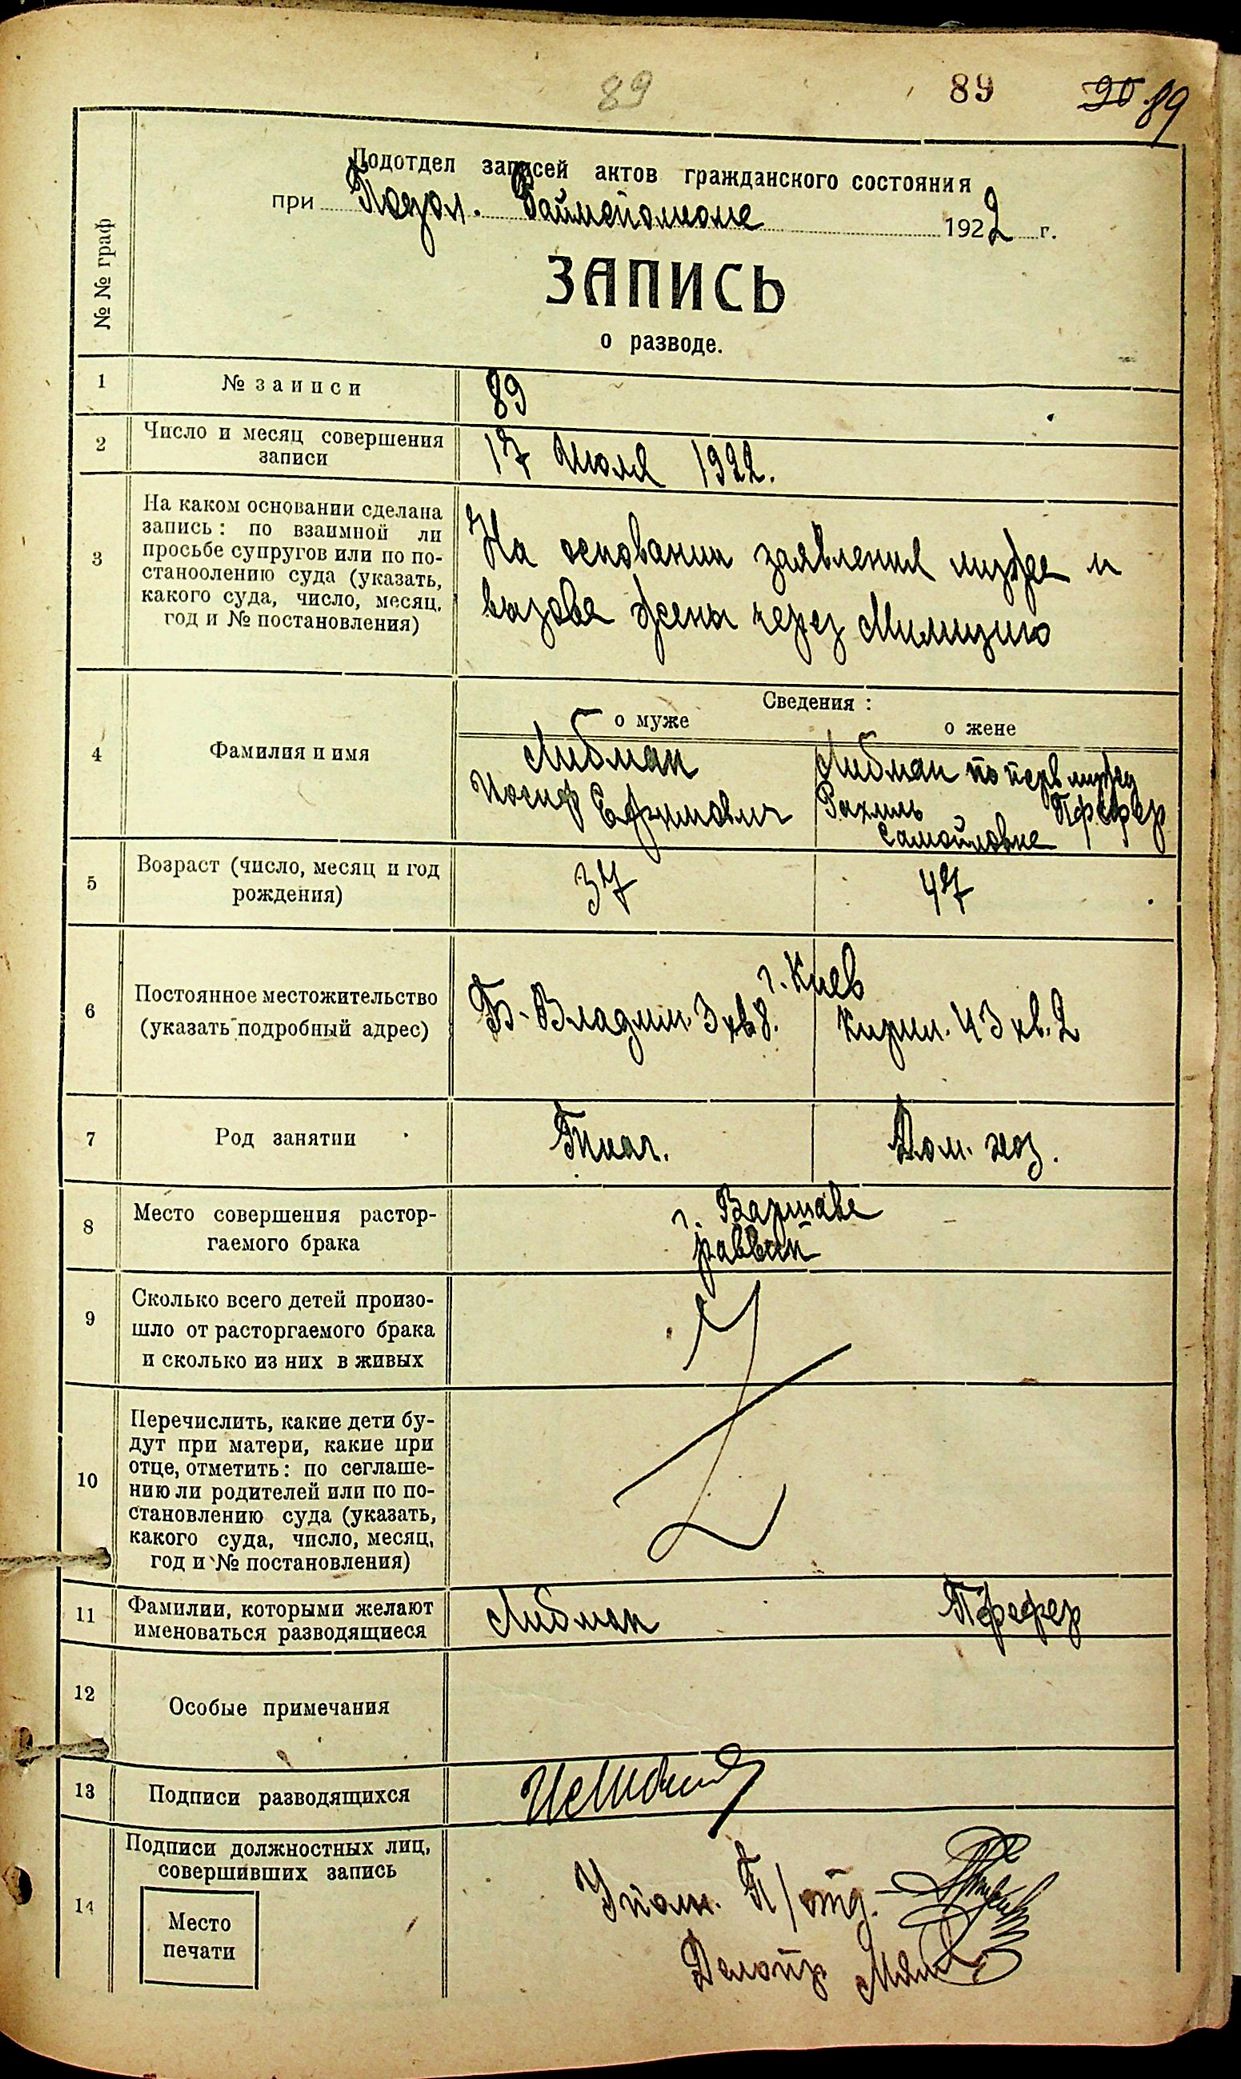 89 89 90. 89
Подотдел записей актов гражданского состояния
при Подол. Райисполкоме 1922 г.
№ № граф
ЗАПИСЬ
о разводе.
1 № записи 89
2 Число и месяц совершения
записи
17 Июля 1922.
3 На каком основании сделана
запись: по взаимной ли
просьбе супругов или по по-
станоолению суда (указать,
какого суда, число, месяц,
год и № постановления)
На основании заявления мужа и
вызова жены через Милицию
Сведения :
о муже о жене
4 Фамилия и имя
Либман
Иосиф Ефимович
Либман по перв мужу
Рахиль Пфефер
Самойловна
5 Возраст (число, месяц и год
рождения)
37 47
6 Постоянное местожительство
(указать подробный адрес)
г. Киев
Б-Владим. 3 кв 8. Кирил. 43 кв. 2
7 Род занятии Дом. хоз.
8 Место совершения растор-
гаемого брака
г. Варшаве
раввин
9 Сколько всего детей произо-
шло от расторгаемого брака
и сколько из них в живых
10 Перечислить, какие дети бу-
дут при матери, какие при
отце, отметить: по сеглаше-
нию ли родителей или по по-
становлению суда (указать,
какого суда, число, месяц,
год и № постановления)
11 Фамилии, которыми желают
именоваться разводящиеся
Либман Пфефер
12 Особые примечания
13 Подписи разводящихся
14 Подписи должностных лиц,
совершивших запись
Место
печати
Уполн. П/отд.
Делопр